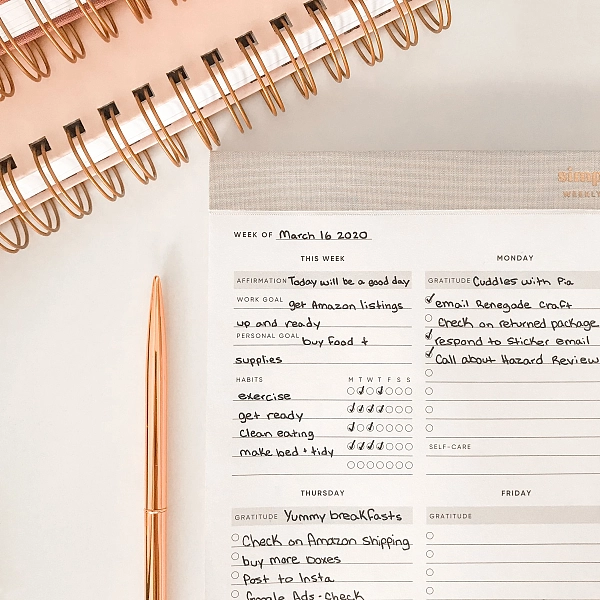 WEEKLY
WEEK OF March 16 2020
THIS WEEK
AFFIRMATION Today will be a good day
WORK GOAL get Amazon listings
up and ready
PERSONAL GOAL buy food +
supplies
HABITS M T W T F S S
exercise
get ready
clean eating
make bed + tidy
MONDAY
GRATITUDE Cuddles with Pia
email Renegade Craft
check on returned package
respond to sticker email
Call about Hazard Review
SELF-CARE
THURSDAY
GRATITUDE Yummy breakfasts
Check on Amazon Shipping
buy more boxes
Post to Insta
Google Ads - check
FRIDAY
GRATITUDE